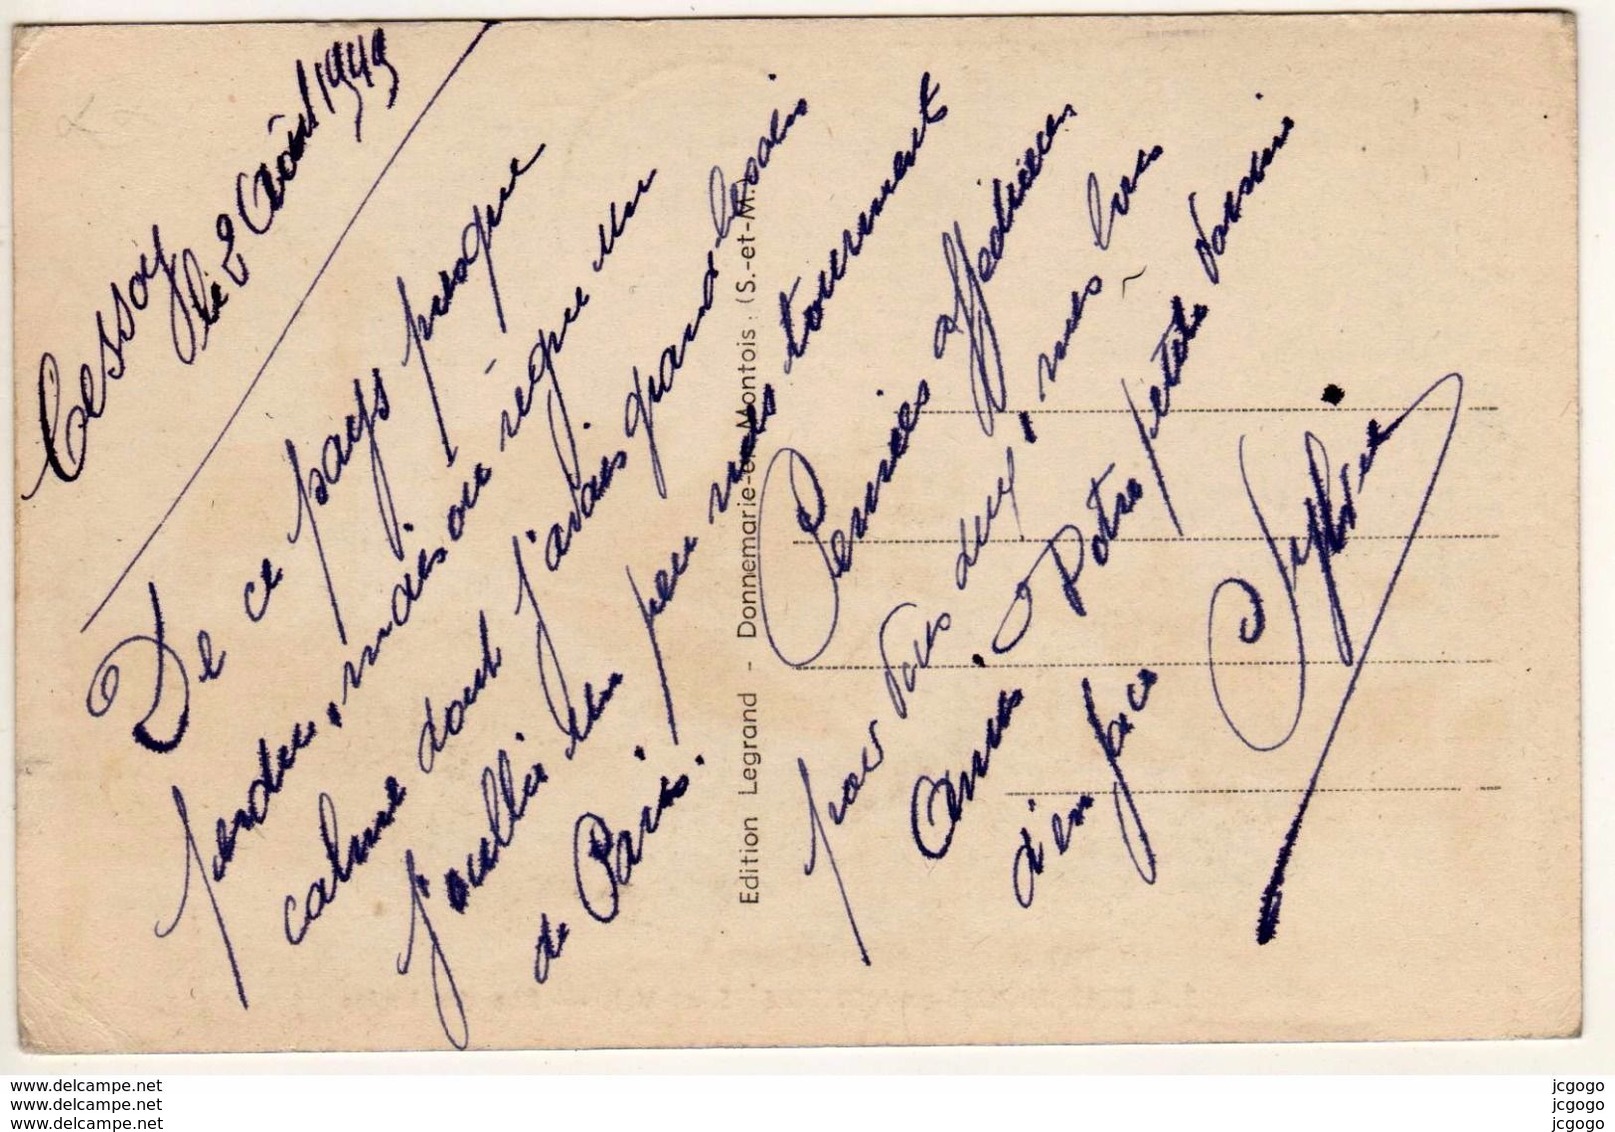 Cessoy
le 2 Août 1949
De ce pays presque
perdu, mais où règne un
calme dont j'avais grand besoin
j'oublie un peu mes tourments
de Paris.
Pensées affectueuses
pour vous deux, mes bons
Amis.
Votre petite voisine
d'en face
Sylvie
Edition Legrand - Donnemarie-en-Montois (S.-et-M.)
www.delcampe.net
www.delcampe.net
www.delcampe.net
jcgogo
jcgogo
jcgogo